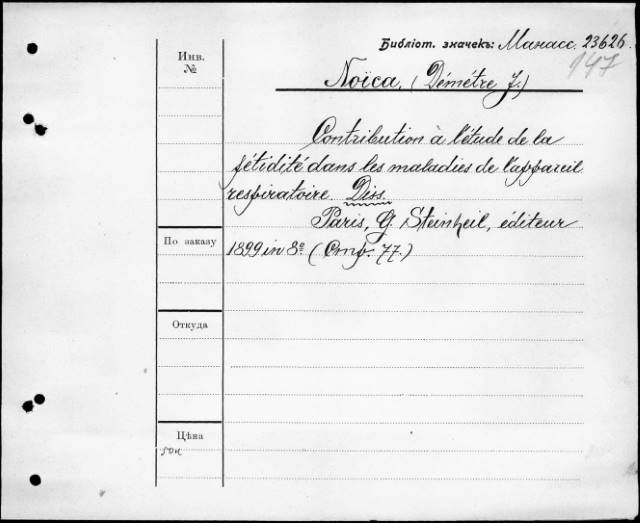 Библіот. значекъ: Манасс. 23626.
947
Инв.
№
Noïca, (Démétre J.)
Contribution à l'étude de la
fétidité dans les maladies de l'appareil
respiratoire. Diss.
Paris, G. Steinheil, éditeur
По заказу
1899 in 8º (Стр. 77.)
Откуда
Цѣна
50к